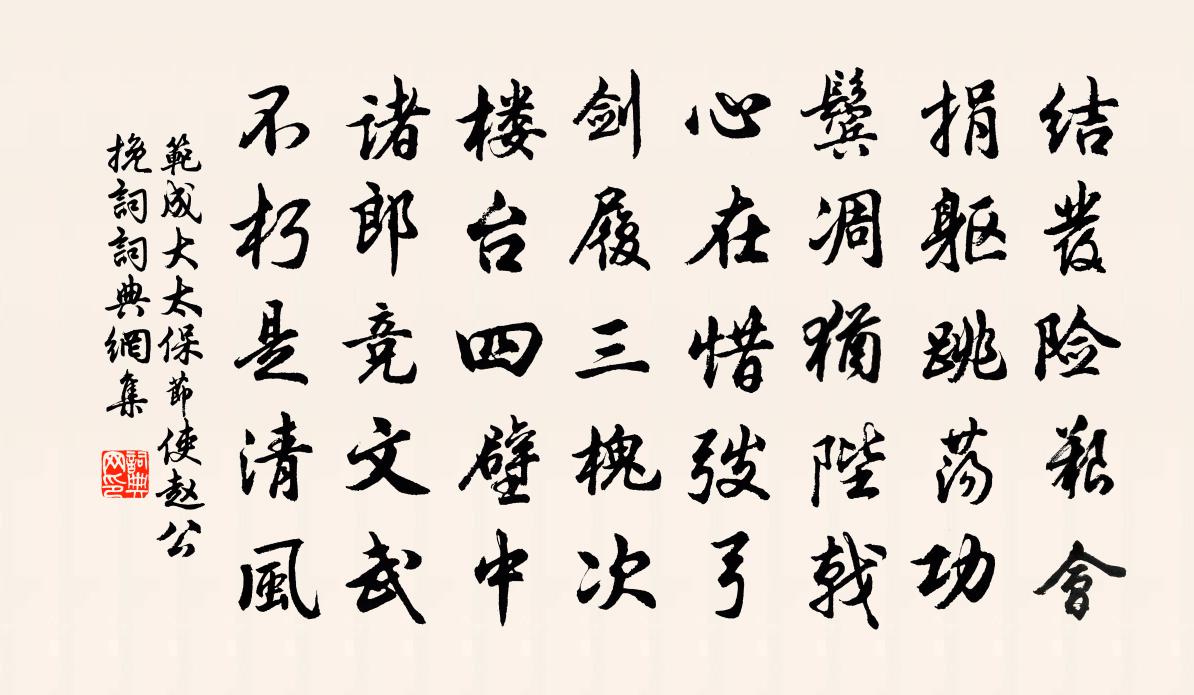 结發险艰會
捐躯跳荡功
鬓凋犹陛戟
心在惜弢弓
剑履三槐次
楼台四壁中
诸郎竞文武
不朽是清風
範成大太保節使赵公
挽詞詞典網集
詞典网印